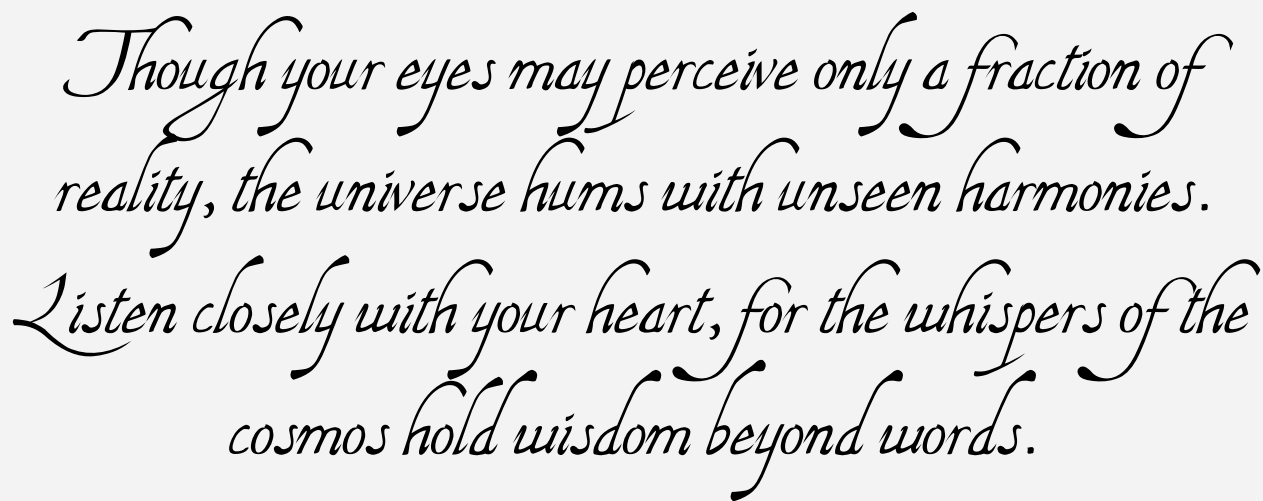 Though your eyes may perceive only a fraction of
reality, the universe hums with unseen harmonies.
Listen closely with your heart, for the whispers of the
cosmos hold wisdom beyond words.